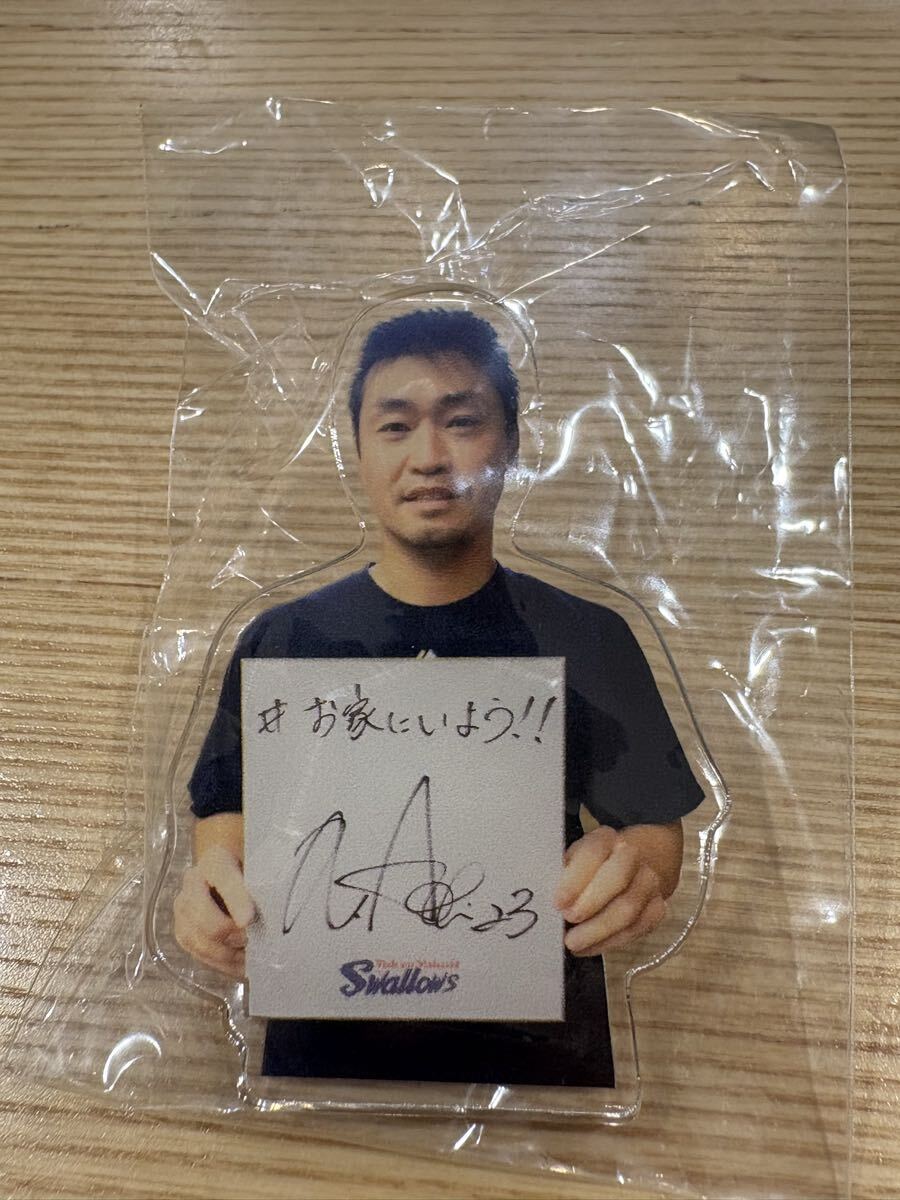 #お家にいよう!!
23
Tokyo Yakult
Swallows